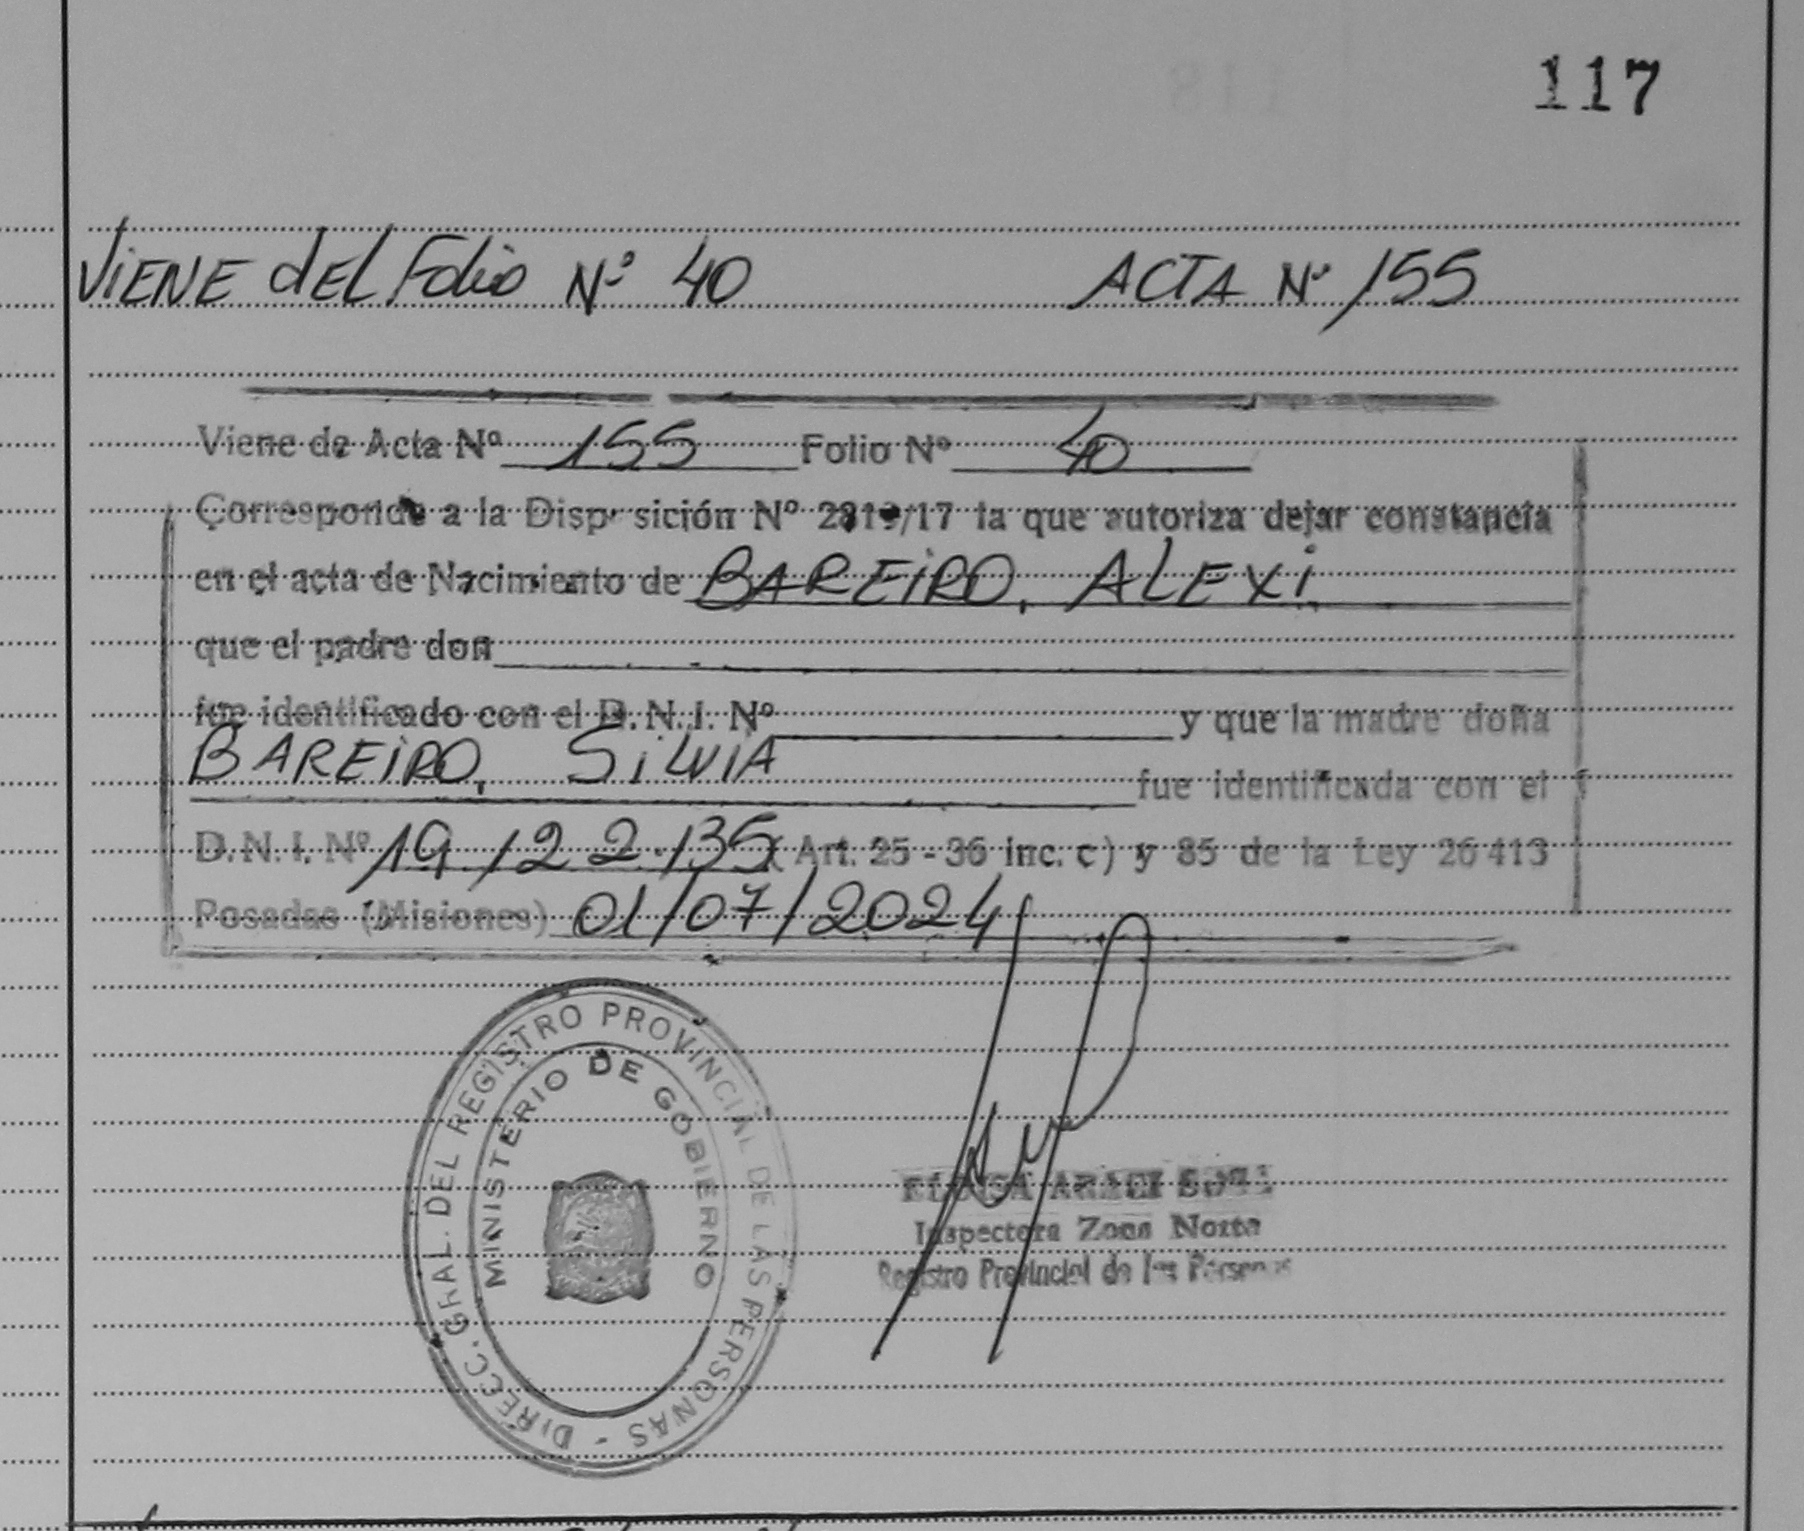 117
VIENE dEL Folio Nº 40 ACTA Nº 155
Viene de Acta Nº 155 Folio Nº 40
Corresponde a la Disposición Nº /17 la que autoriza dejar constancia
en el acta de Nacimiento de BAREIRO, ALEXI
que el padre don
fue identificado con el D.N.I. Nº y que la madre doña
BAREIRO, SILVIA fue identificada con el
D.N.I. Nº 19.122.135 (Art. 25 - 36 inc. c) y 85 de la Ley 26413
Posadas (Misiones) 01/07/2024
DIRECC. GRAL. DEL REGISTRO PROVINCIAL DE LAS PERSONAS -
MINISTERIO DE GOBIERNO
Inspectora Zona Norte
Registro Provincial de las Personas